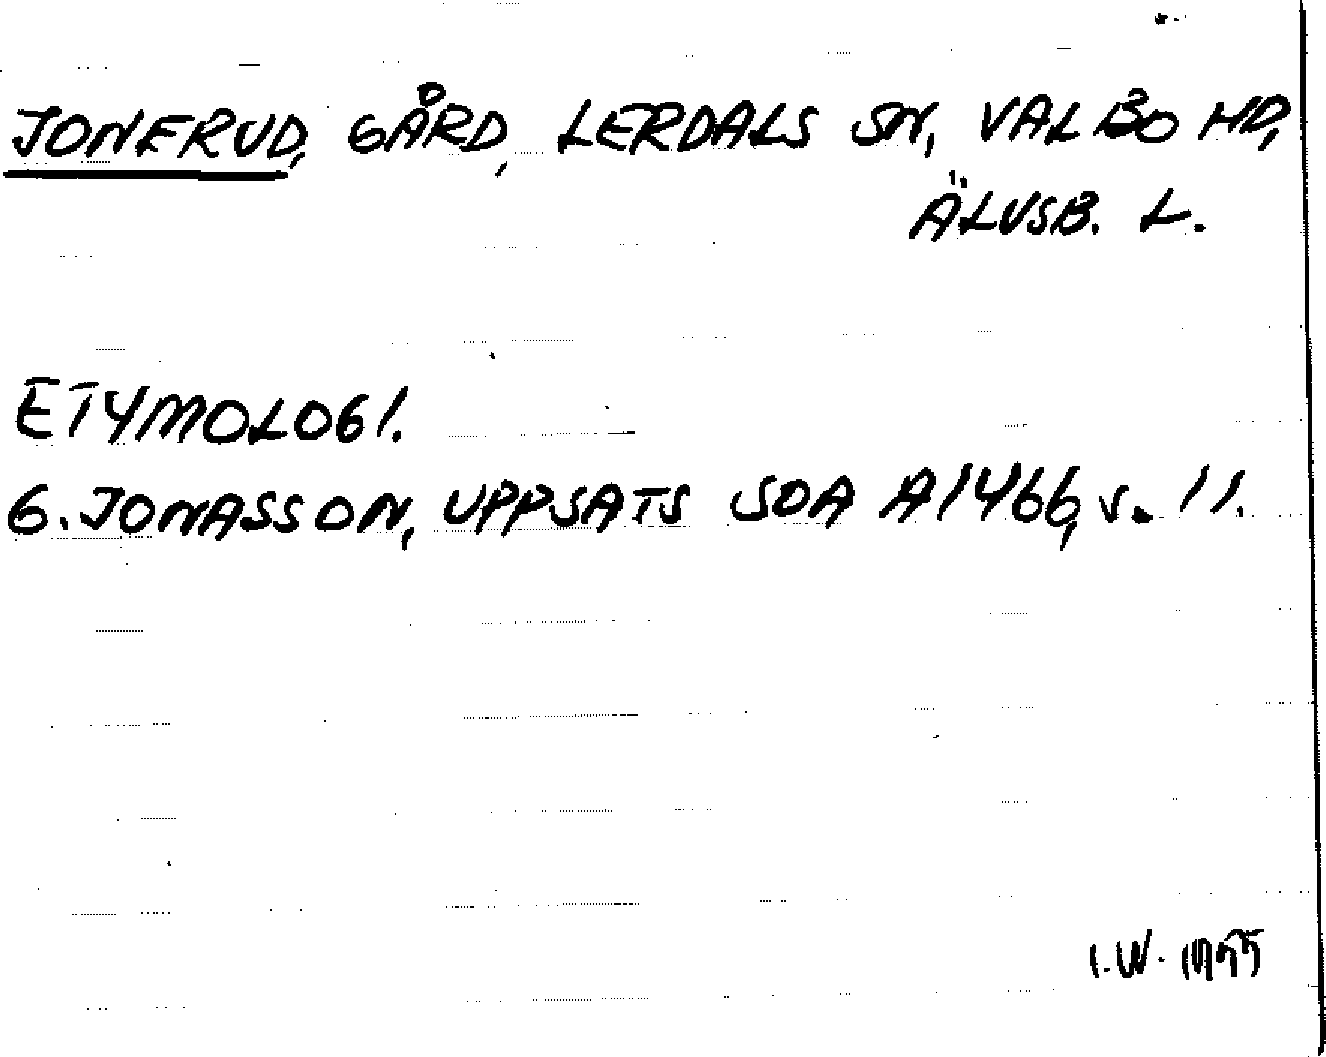 JONERUD, GÅRD, LERDALS SN, VALBO HD,
ÄLVSB. L.
ETYMOLOGI.
G. JONASSON, UPPSATS SOA A1466, S. 11.
I.W.